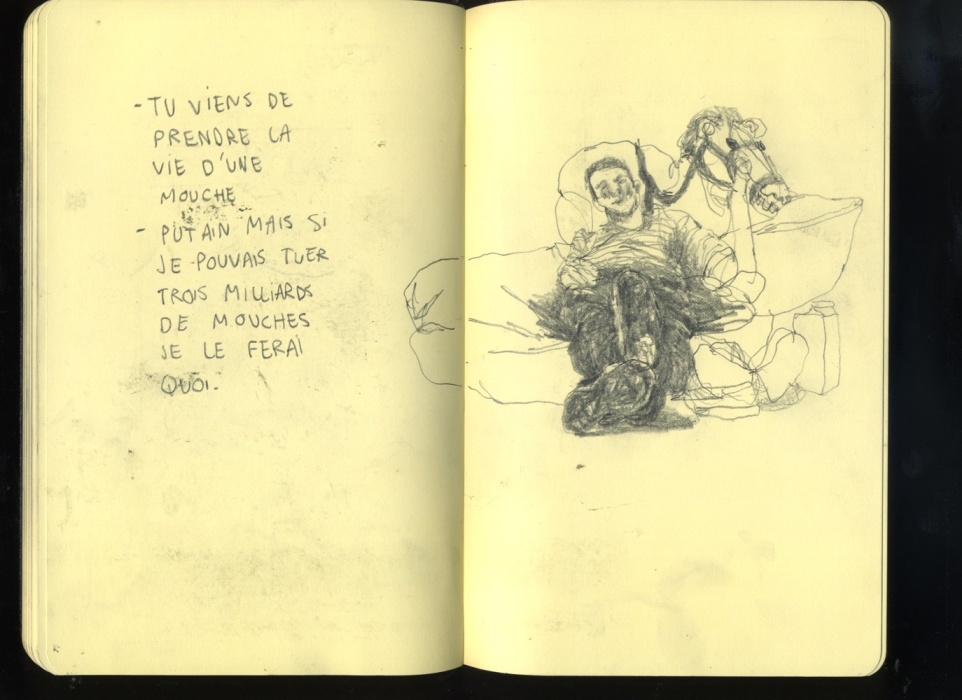 - TU VIENS DE
PRENDRE LA
VIE D'UNE
MOUCHE
- PUTAIN MAIS SI
JE POUVAIS TUER
TROIS MILLIARDS
DE MOUCHES
JE LE FERAI
QUOI.